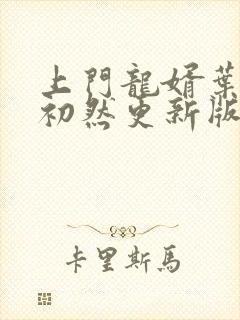 上門龍婿葉
初然更新版
卡里斯馬